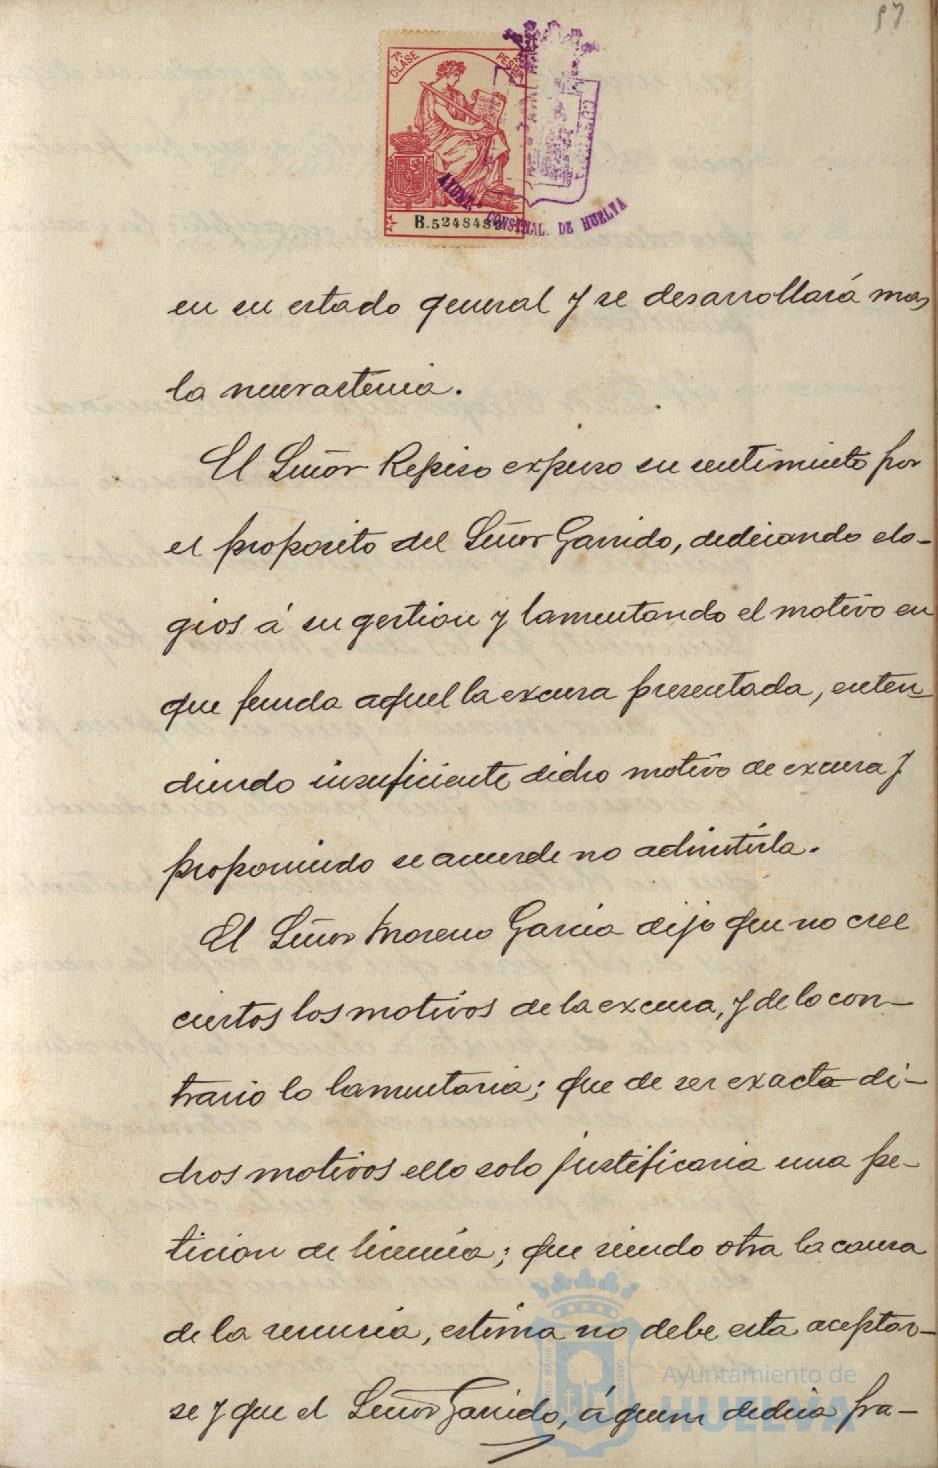 97
7ª CLASE
B.5248482
AYUNT. CONSTNAL. DE HUELVA
en su estado general y se desarrollará mas
la neurastenia.
El Señor Repiso expuso su sentimiento por
el proposito del Señor Garrido, dedicando elo-
gios á su gestion y lamentando el motivo en
que funda aquel la excusa presentada, enten
diendo insuficiente dicho motivo de excusa y
proponiendo se acuerde no admitirla.
El Señor Moreno Garcia dijo que no cree
ciertos los motivos de la excusa, y de lo con-
trario lo lamentaria; que de ser exacta di-
chos motivos ello solo justificaria una pe-
ticion de licencia; que siendo otra la causa
de la renuncia, estima no debe esta aceptar-
se y que el Señor Garrido, á quien dedica fra-
Ayuntamiento de
HUELVA